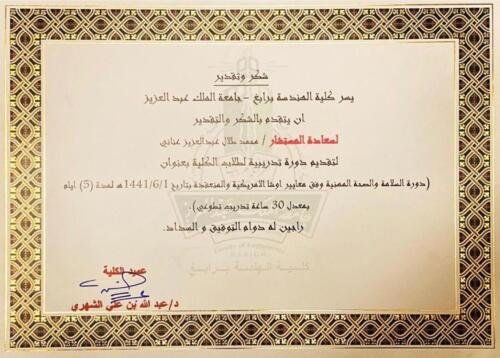 شكر وتقدير
يسر كلية الهندسة برابغ - جامعة الملك عبد العزيز
ان يتقدم بالشكر والتقدير
لسعادة المستشار / محمد طلال عبدالعزيز عناني
لتقديم دورة تدريبية لطلاب الكلية بعنوان
(دورة السلامة والصحة المهنية وفق معايير اوشا الامريكية والمنعقدة بتاريخ 1441/6/1هـ لمدة (5) ايام
بمعدل 30 ساعة تدريب تطوعي)
راجين له دوام التوفيق و السداد.
Faculty of Engineering
RABIGH
كلية الهندسة برابغ
عميد الكلية
د/عبد الله بن علي الشهري